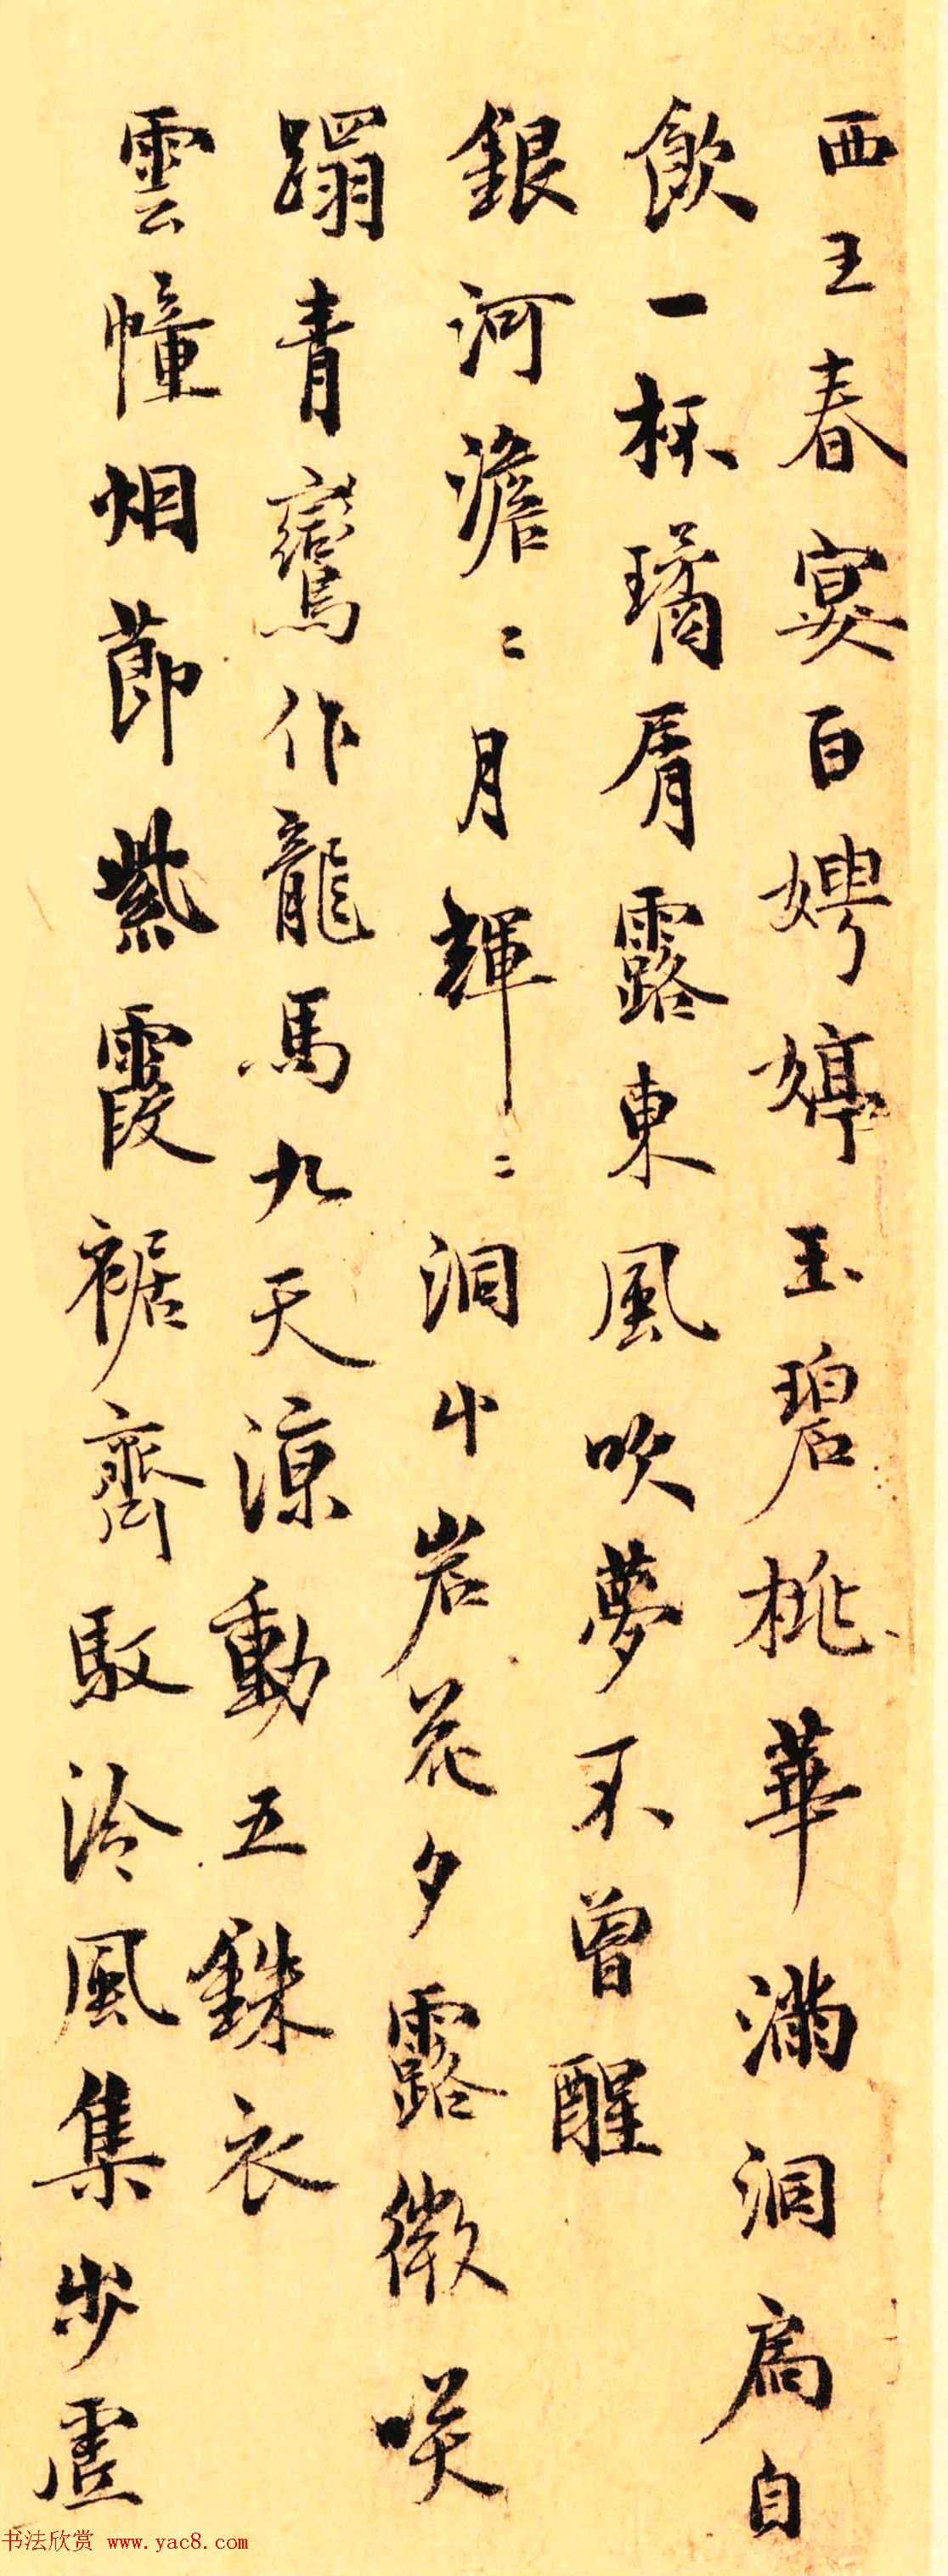 西王春宴百娉婷玉碧桃華滿洞扃自
飲一杯璚屑露東風吹夢不曾醒
銀河澹〻月輝〻洞岩花夕露微咲
蹋青鸞作龍馬九天涼動五銖衣
雲幢烟節紫霞裾齊馭泠風集步虛
书法欣赏 www.yac8.com